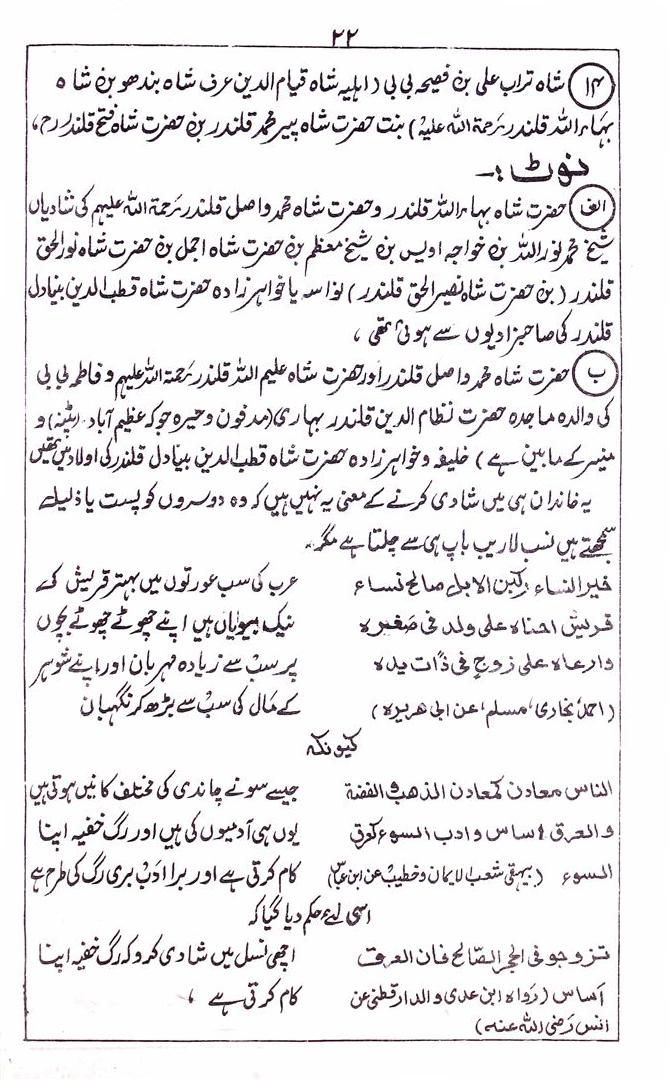 ۲۲
۱۴ شاہ تراب علی بن فصیحہ بی بی (اہلیہ شاہ قیام الدین عرف شاہ بندھو بن شاہ
بہاء اللہ قلندر رحمۃ اللہ علیہ) بنت حضرت شاہ پیر محمد قلندر بن حضرت شاہ فتح قلندر رح،
نوٹ :۔
الف حضرت شاہ بہاء اللہ قلندر و حضرت شاہ محمد واصل قلندر رحمۃ اللہ علیہم کی شادیاں
شیخ محمد نور اللہ بن خواجہ اویس بن شیخ معظم بن حضرت شاہ اجمل بن حضرت شاہ نور الحق
قلندر (بن حضرت شاہ نصیر الحق قلندر) نواسہ یا خواہر زادہ حضرت شاہ قطب الدین بینادل
قلندر کی صاحبزادیوں سے ہوئی تھی ،
ب حضرت شاہ محمد واصل قلندر اور حضرت شاہ علیم اللہ قلندر رحمۃ اللہ علیہم و فاطمہ بی بی
کی والدہ ماجدہ حضرت نظام الدین قلندر بہاری (مدفون وحیرہ جو کہ عظیم آباد (پٹنہ) و
منیر کے مابین ہے) خلیفہ و خواہر زادہ حضرت شاہ قطب الدین بینادل قلندر کی اولاد میں تھیں
یہ خاندان ہی میں شادی کرنے کے معنی یہ نہیں ہیں کہ وہ دوسروں کو پست یا ذلیل
سمجھتے ہیں نسب لاریب باپ ہی سے چلتا ہے مگر۔
خیر النساء رکبن الابل صالح نساء عرب کی سب عورتوں میں بہتر قریش کے
قریش احناہ علی ولد فی صغیرہ نیک بیویاں ہیں اپنے چھوٹے چھوٹے بچوں
وارعاہ علی زوج فی ذات یدہ پر سب سے زیادہ مہربان اور اپنے شوہر
(احمد، بخاری، مسلم، عن ابی ھریرہ) کے مال کی سب سے بڑھ کر نگہبان
کیونکہ
الناس معادن کمعادن الذھب والفضۃ جیسے سونے چاندی کی مختلف کانیں ہوتی ہیں
والعرق اساس وادب السوء کعرق یوں ہی آدمیوں کی ہیں اور رگ خفیہ اپنا
السوء (بیہقی شعب الایمان و خطیب عن ابن عباس) کام کرتی ہے اور برا ادب بری رگ کی طرح ہے
اسی لئے حکم دیا گیا کہ
تزوجو فی الحجر الصالح فان العرق اچھی نسل میں شادی کرو کہ رگ خفیہ اپنا
اساس (رواہ ابن عدی والدار قطنی عن کام کرتی ہے ،
انس رضی اللہ عنہ)